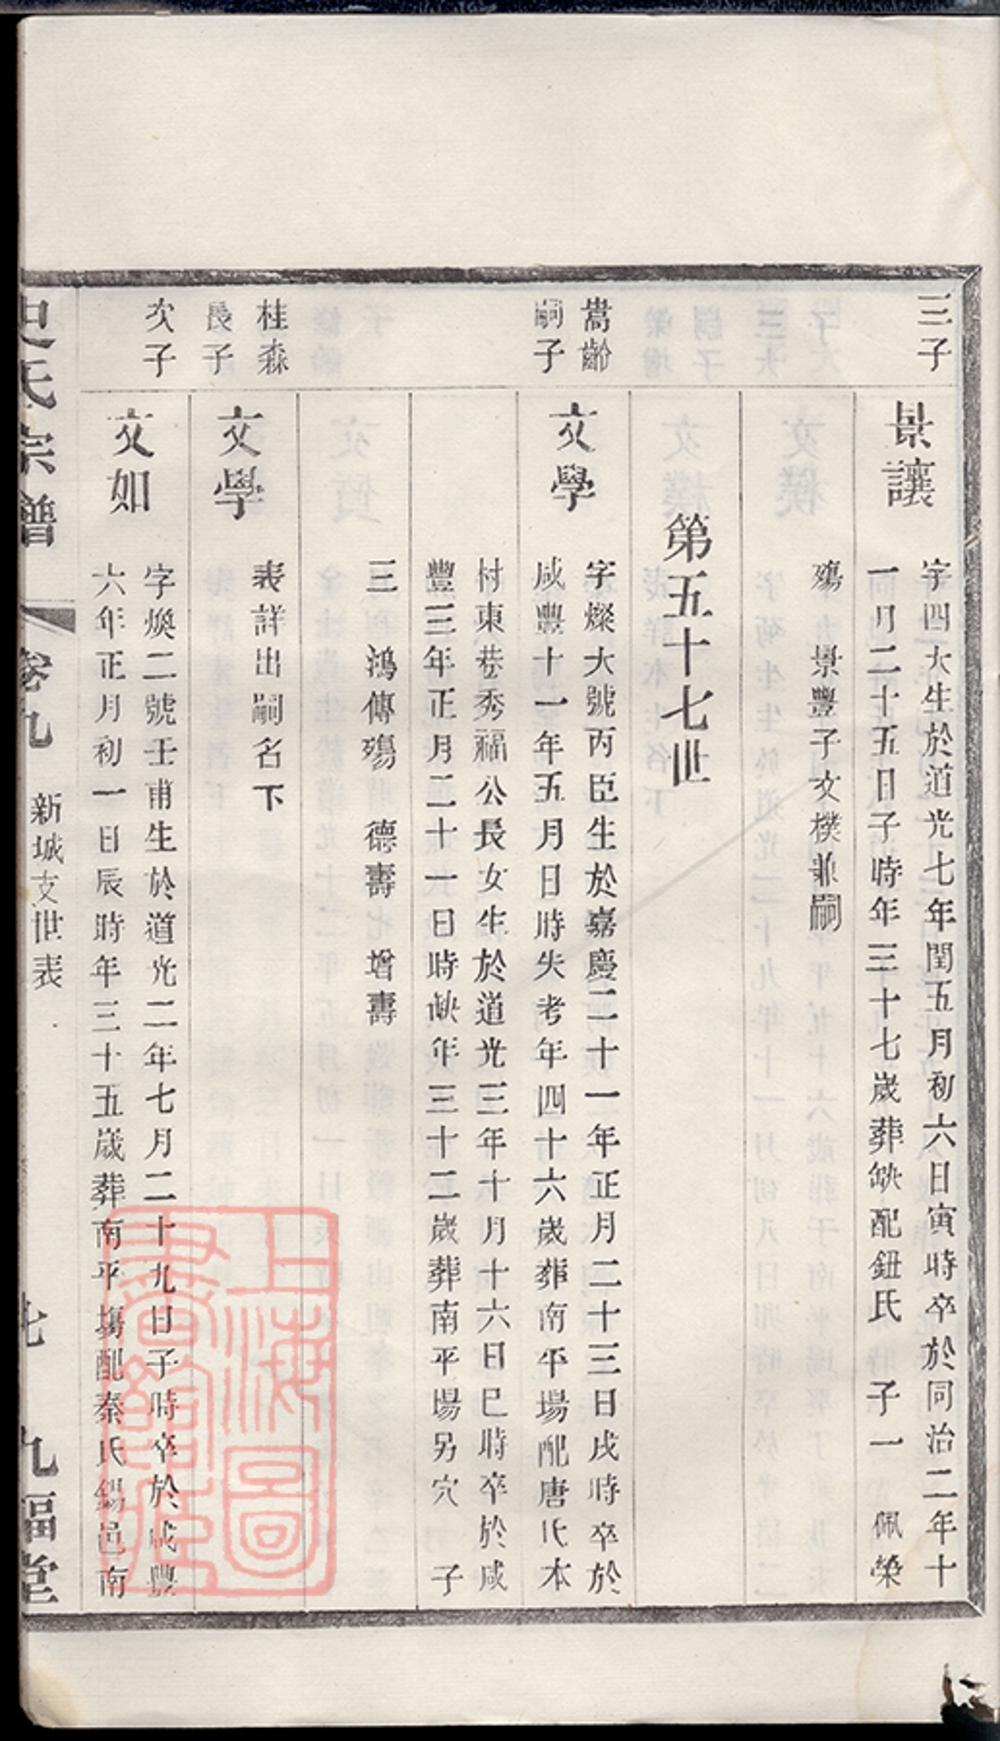 三子
景讓
字四大生於道光七年閏五月初六日寅時卒於同治二年十
一月二十五日子時年三十七歲葬缺配鈕氏 子一 佩榮
殤 景豐子文樸兼嗣
第五十七世
嵩齡
嗣子
文學
字燦大號丙臣生於嘉慶二十一年正月二十三日戌時卒於
咸豐十一年五月日時失考年四十六歲葬南平場配唐氏本
村東巷秀福公長女生於道光三年十月十六日巳時卒於咸
豐三年正月二十一日時缺年三十二歲葬南平場另穴 子
三 鴻傳殤 德壽 增壽
桂森
長子
文學
表詳出嗣名下
次子
文如
字煥二號壬甫生於道光二年七月二十九日子時卒於咸豐
六年正月初一日辰時年三十五歲葬南平塲配秦氏錫邑南
史氏宗譜 卷九 新城支世表 七 九福堂
上海圖
書館藏